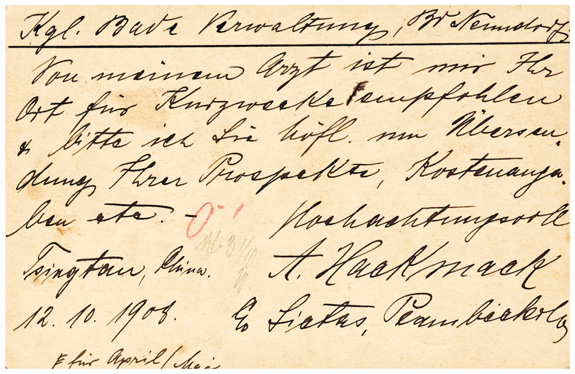 Kgl. Bade Verwaltung, Bd Nenndorf
Von meinem Arzt ist mir Ihr
Ort für Kurzwecke empfohlen
& bitte ich Sie höfl. um Übersen-
dung Ihrer Prospekte, Kostenanga-
ben etc. –
Hochachtungsvoll
Tsingtau, China.
A. Hackmack
12. 10. 1908.
c/o Sietas, Plambeck & Co
für April/Mai